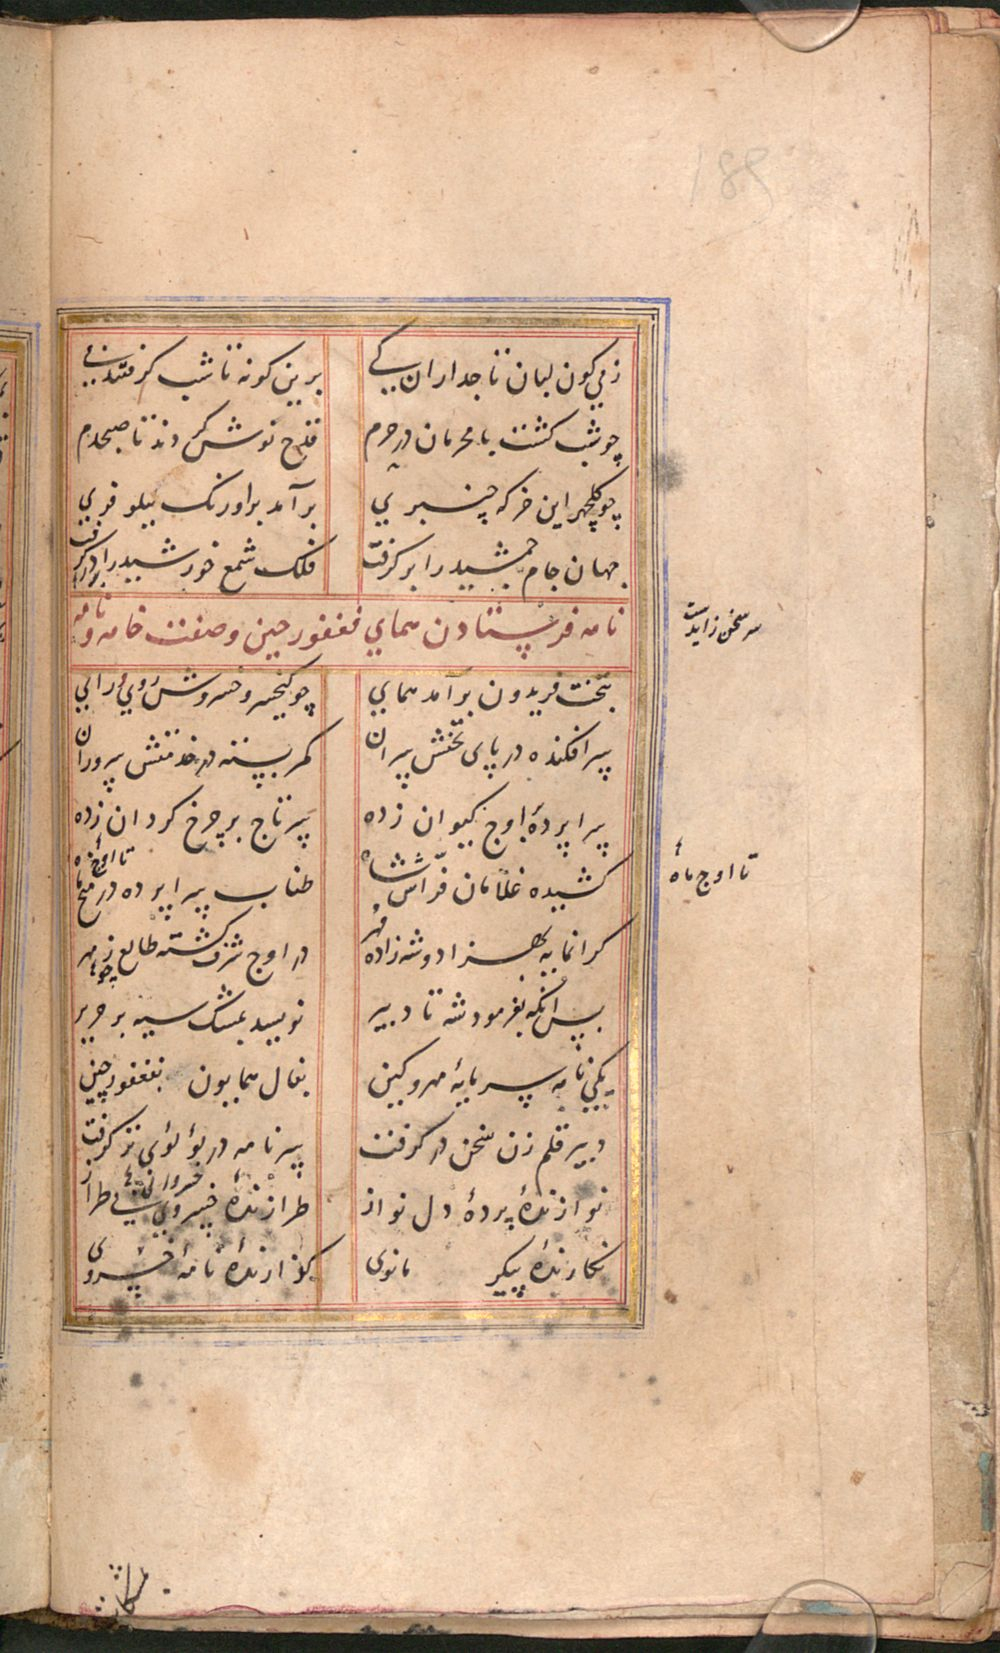 189
ز می کون لبان تاجداران کی
برین کونه تا شب کرفتند می
چو شب کشت با محرمان در حرم
قدح نوش کردند تا صبحدم
چو کلچهر این خرکه چنبری
برآمد بر اورنک نیلوفری
جهان جام جمشید را بر کرفت
فلک شمع خورشید را در کرفت
نامه فرستادن همای فغفور چین وصفت خامه و نامه
سه سخن زایدست
بتخت فریدون برآمد همای
چو کیخسرو خسروش روی و رای
سر افکنده در پای تختش سران
کمر بسته در خدمتش سروران
سراپردهٔ باوج کیوان زده
سر تاج بر چرخ کردان زده
کشیده غلامان فراش شاه
طناب سراپرده در میخ ماه
تا اوج ماه
تا اوج ماهٔ
کرانمایه بهزاد و شه‌زاده مهر
در اوج شرف کشته طالع ز مهر
چو
پس آنکه بفرمود شه تا دبیر
نویسد بمشک سیه بر حریر
یکی نامه سرمایهٔ مهر و کین
بفال همایون بفغفور چین
دبیر قلم زن سخن در کرفت
سر نامه در لؤلؤی تر کرفت
نوازندهٔ پردهٔ دل نواز
طرازندهٔ خسروی طراز
خسروانی
نکارندهٔ پیکر مانوی
کزارندهٔ نامهٔ خسروی